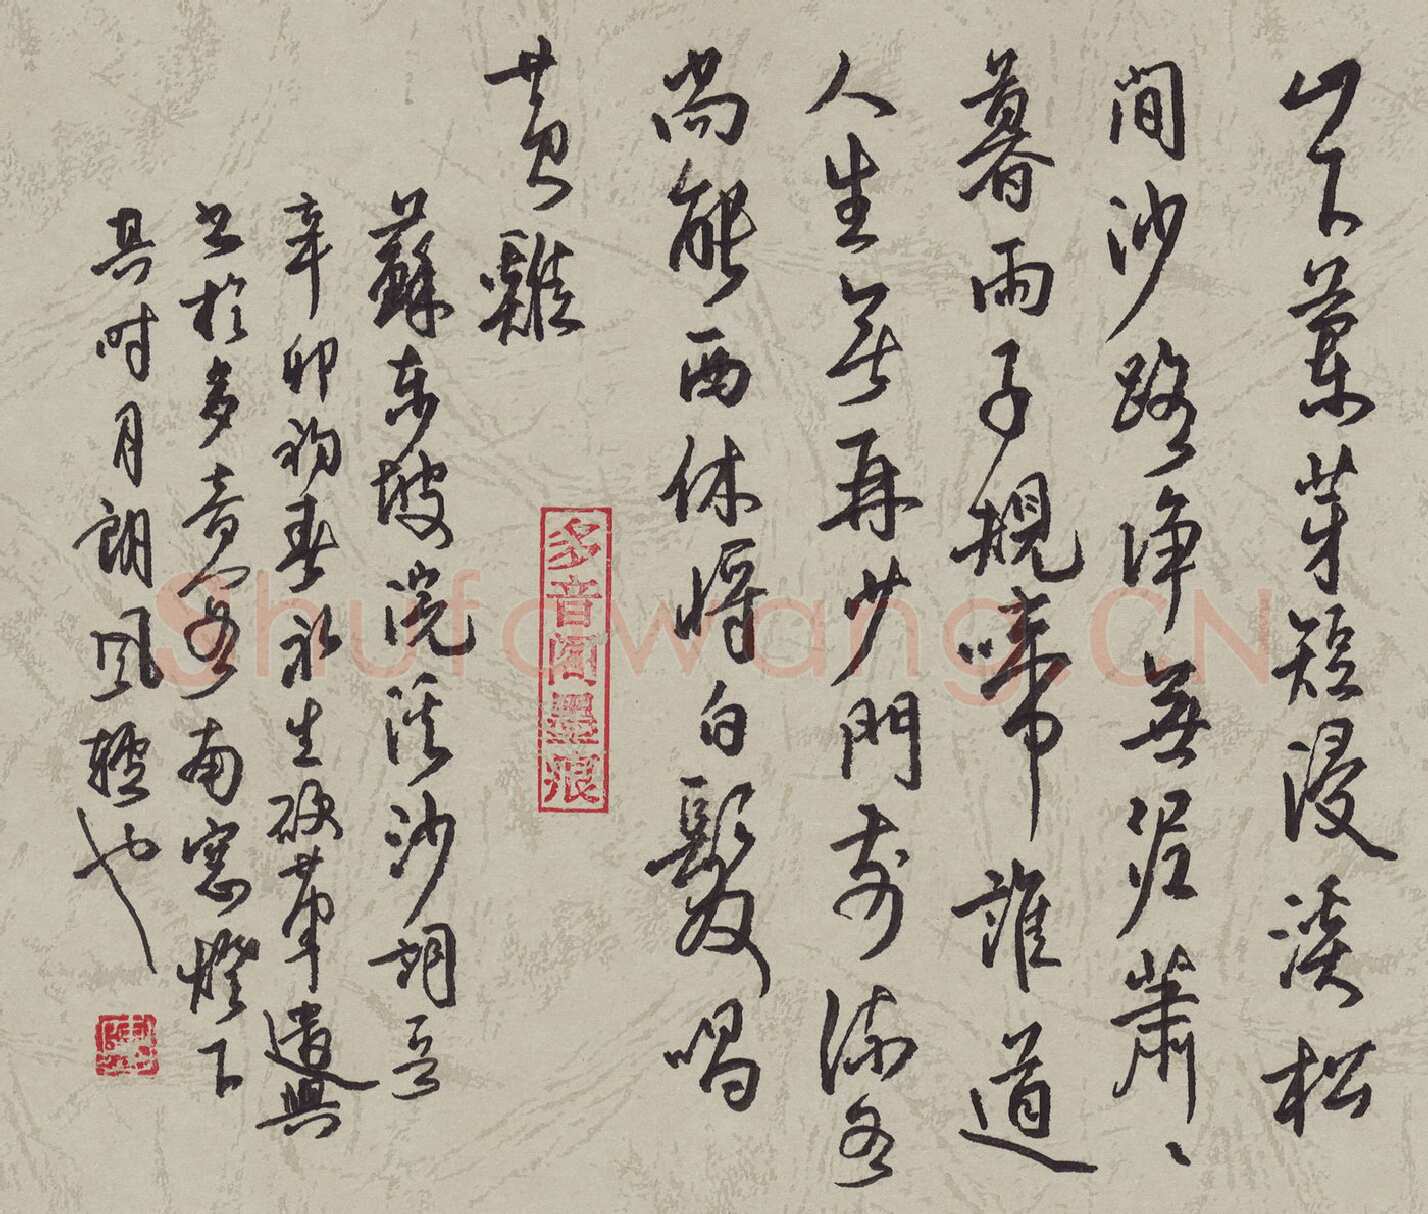 山下蘭芽短浸溪松
间沙路净無泥蕭〻
暮雨子規啼誰道
人生無再少門前流水
尚能西休將白髮唱
黃雞
多音阁墨痕
蘇東坡浣溪沙詞
辛卯初春永生硬筆遣興
书於多音阁南窓燈下
其时月朗風輕也
Shufawang.CN